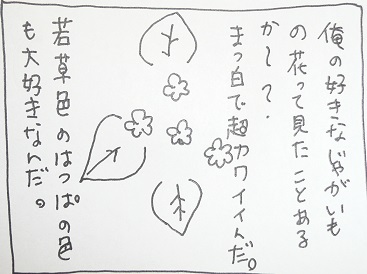 俺の好きなじゃがいも
の花って見たことある
か〜？？
まっ白で超カワイイんだ。
若草色のはっぱの色
も大好きなんだ。